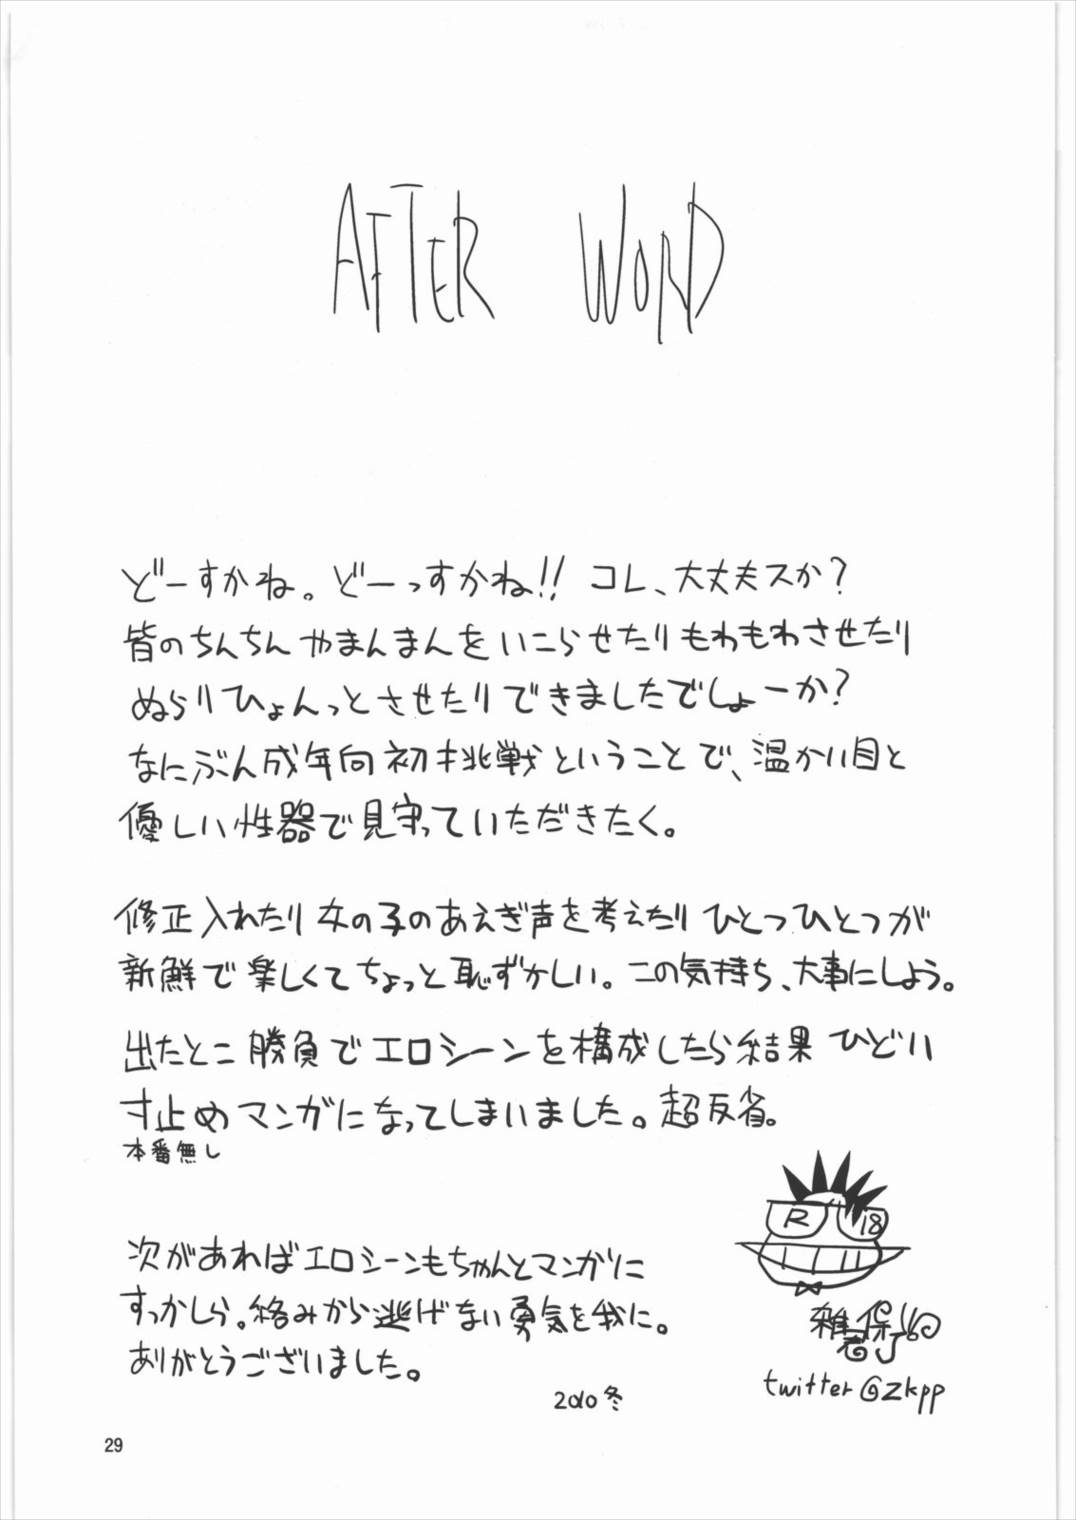 AFTER WORD
どーすかね。どーっすかね!! コレ、大丈夫スか?
皆のちんちんやまんまんをいこらせたりもわもわさせたり
ぬらりひょんっとさせたりできましたでしょーか?
なにぶん成年向初挑戦ということで、温かい目と
優しい性器で見守っていただきたく。
修正入れたり女の子のあえぎ声を考えたりひとつひとつが
新鮮で楽しくてちょっと恥ずかしい。この気持ち、大事にしよう。
出たとこ勝負でエロシーンを構成したら結果ひどい
寸止めマンガになってしまいました。超反省。
本番無し
R 18
次があればエロシーンもちゃんとマンガに
すっかしら。絡みから逃げない勇気を我に。
ありがとうございました。
雑君保プ
twitter@zkpp
2010冬
29